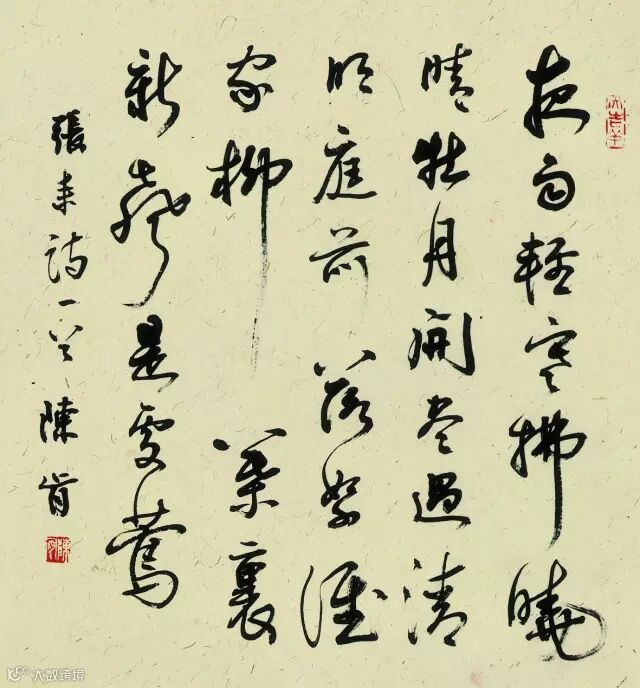 夜雨輕寒拂曉
晴牡丹開尽過清
明庭前落絮誰
家柳葉裏
新聲是處鶯
張耒詩一首陳肯
大数跨境